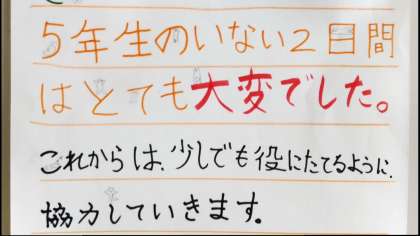 5年生のいない2日間
はとても大変でした。
これからは、少しでも役にたてるように、
協力していきます。